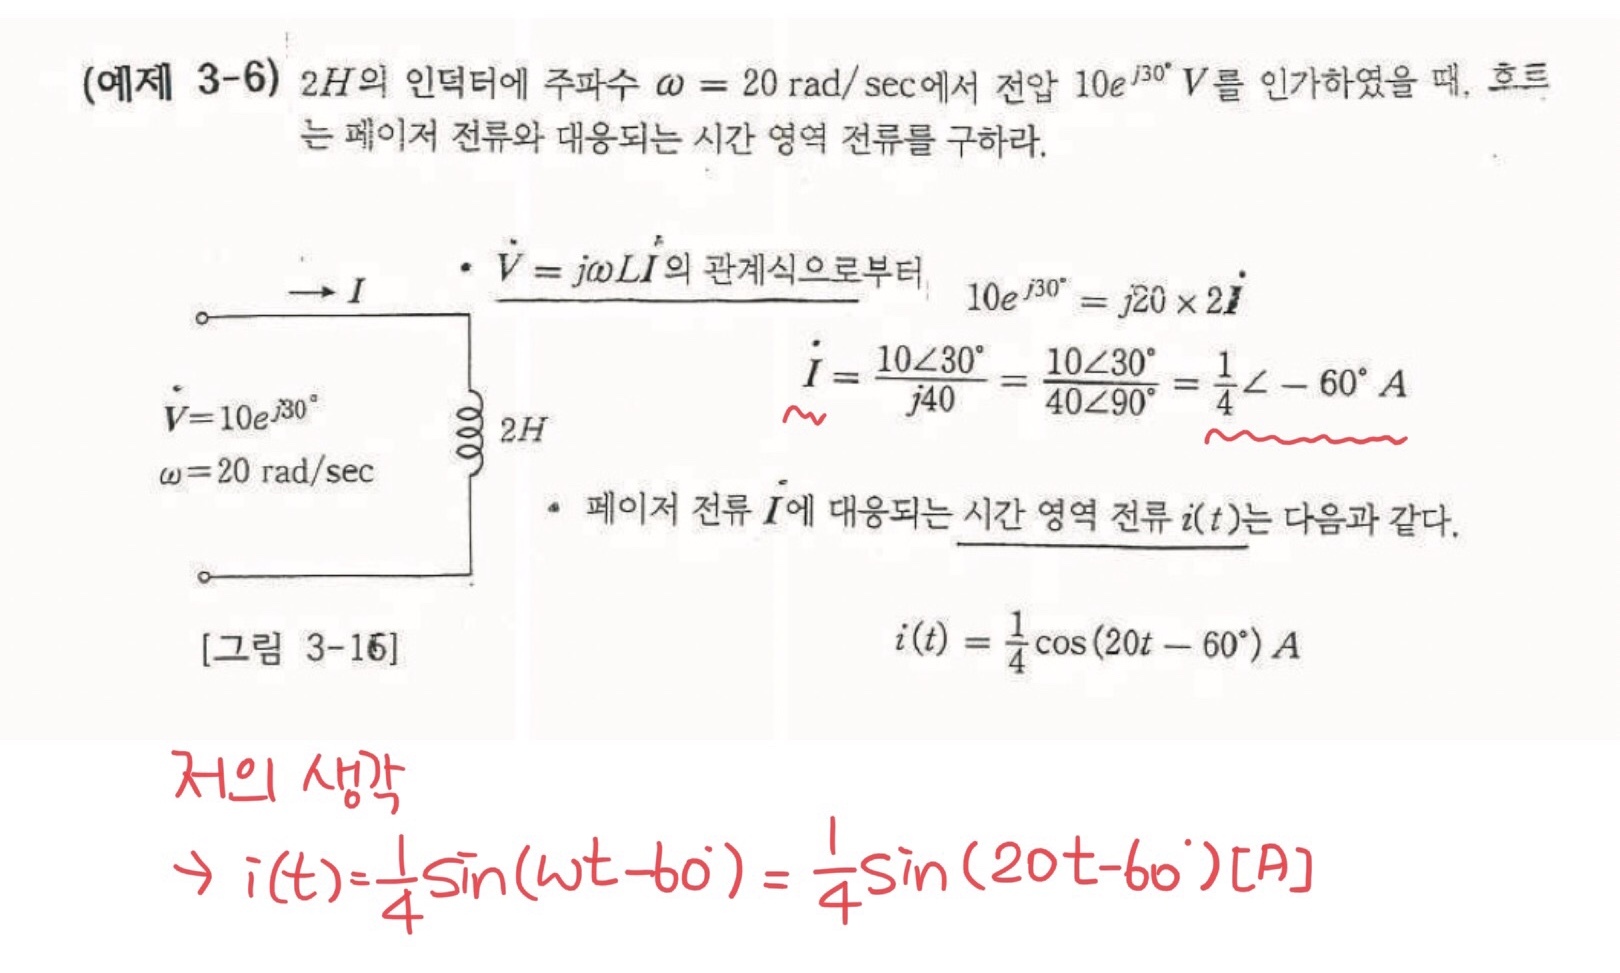 (예제 3-6) 2H의 인덕터에 주파수 ω = 20 rad/sec에서 전압 10e^{j30°} V를 인가하였을 때, 흐르
는 페이저 전류와 대응되는 시간 영역 전류를 구하라.
• V̇ = jωLİ의 관계식으로부터
10e^{j30°} = j20 × 2İ
→ I
İ = 10∠30°/j40 = 10∠30°/40∠90° = 1/4 ∠ − 60° A
V̇=10e^{j30°}
2H
ω=20 rad/sec
• 페이저 전류 İ에 대응되는 시간 영역 전류 i(t)는 다음과 같다.
i(t) = 1/4 cos(20t − 60°) A
[그림 3-16]
저의 생각
→ i(t)=1/4 sin(ωt-60°) = 1/4 sin(20t-60°)[A]